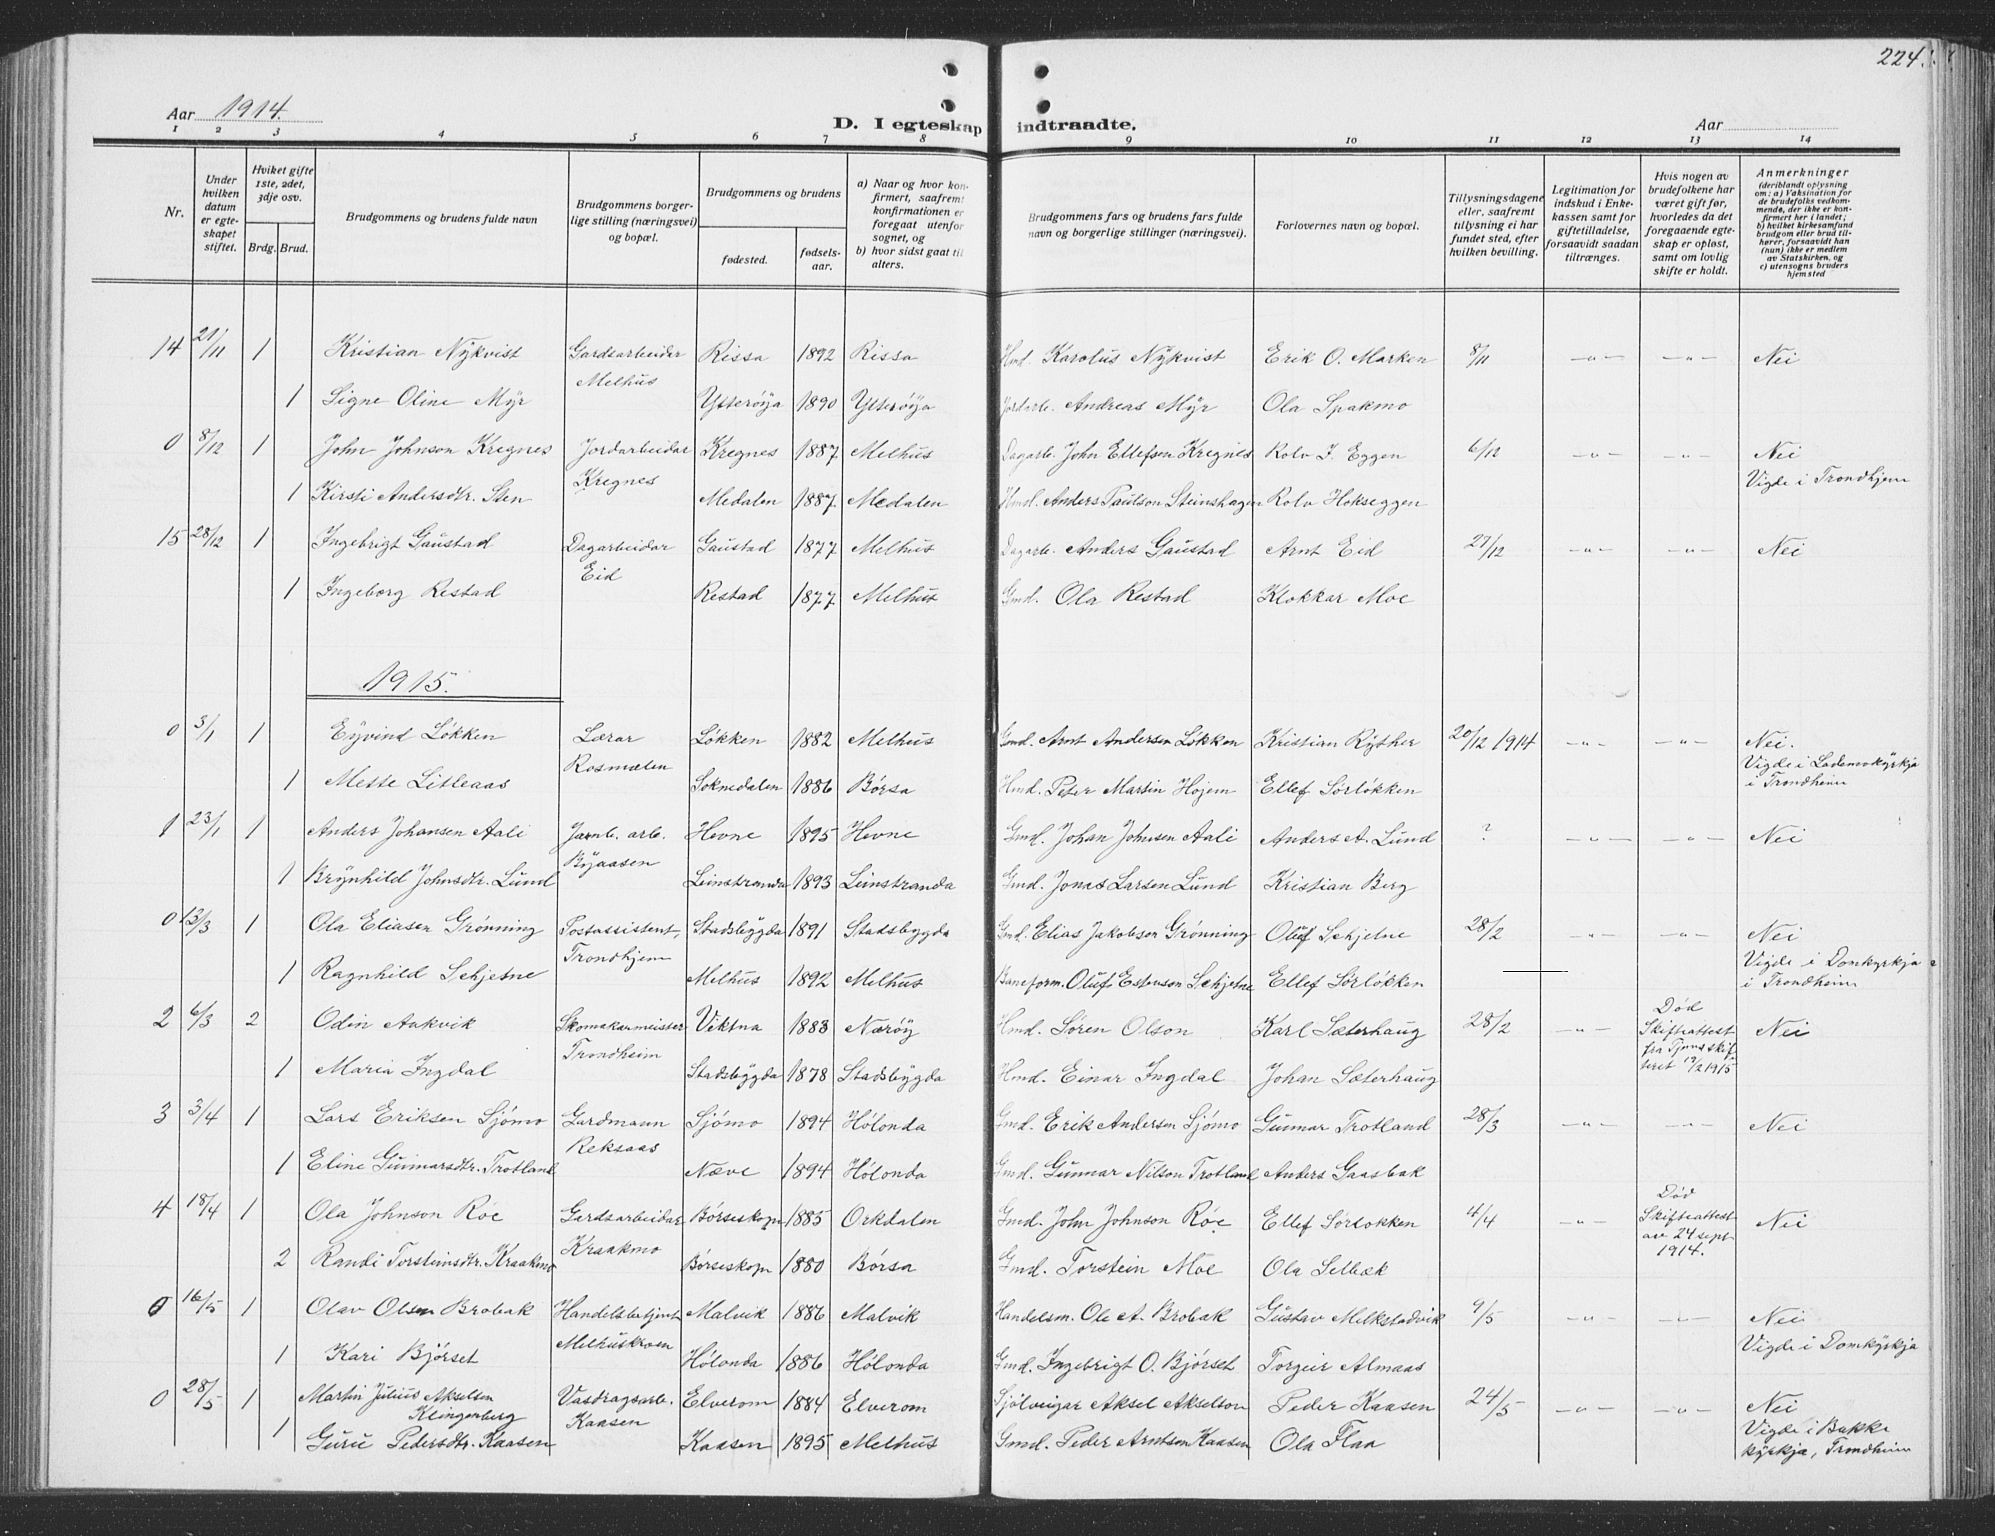 224.
Aar 1914.
D. I egteskap indtraadte.
Aar
1 2 3 4 5 6 7 8 9 10 11 12 13 14
Nr.
Under hvilken datum er egteskapet stiftet.
Hviket gifte 1ste, 2det, 3dje osv.
Brdg. Brud.
Brudgommens og brudens fulde navn
Brudgommens borgerlige stilling (næringsvei) og bopæl.
Brudgommens og brudens
fødested.
fødselsaar.
a) Naar og hvor konfirmert, saafremt konfirmationen er foregaat utenfor sognet, og
b) hvor sidst gaat til alters.
Brudgommens fars og brudens fars fulde navn og borgerlige stillinger (næringsvei).
Forlovernes navn og bopæl.
Tillysningsdagene eller, saafremt tillysning ei har fundet sted, efter hvilken bevilling.
Legitimation for indskud i Enkekassen samt for giftetilladelse, forsaavidt saadan tiltrænges.
Hvis nogen av brudefolkene har været gift før, hvorledes da det foregaaende egteskap er opløst, samt om lovlig skifte er holdt.
Anmerkninger
(deriblandt oplysning om: a) Vaksination for de brudefolks vedkommende, der ikke er konfirmert her i landet; b) hvilket kirkesamfund brudgom eller brud tilhører, forsaavidt han (hun) ikke er medlem av Statskirken, og c) utensogns bruders hjemsted
14 21/11 1 Kristian Nÿkvist Gardsarbeider Melhus Rissa 1892 Rissa Hmd. Karolus Nÿkvist Erik O. Marken 8/11 -"- -"- Nei
1 Signe Oline Mÿr Ytterøÿa 1890 Ytterøÿa Jordarb. Andreas Mÿr Ola Spakmo
0 8/12 1 John Johnson Kregnes Jordarbeidar Kregnes Kregnes 1887 Melhus Dagarb. John Ellefsen Kregnes Rolv J. Eggen 6/12 -"- -"- Nei
Vigde i Trondhjem
1 Kirsti Andersdtr. Sten Medalen 1887 Medalen Hmd. Anders Paulson Steinshagen Rolv Hokseggen
15 28/12 1 Ingebrigt Gaustad Dagarbeidar Eid Gaustad 1877 Melhus Dagarb. Anders Gaustad Arnt Eid 27/12 -"- -"- Nei
1 Ingeborg Restad Restad 1877 Melhus Gmd. Ola Restad Klokkar Moe
1915.
0 3/1 1 Eÿvind Løkken Lærar Rosmælen Løkken 1882 Melhus Gmd. Arnt Andersen Løkken Kristian Rÿther 20/12 1914 -"- -"- Nei.
Vigde i Lademokÿrkja i Trondheim
1 Mette Litleaas Soknedalen 1886 Børsa Hmd. Peter Martin Hojem Ellef Sørløkken
1 23/1 1 Anders Johansen Aali Jarnb. arb. Bÿaasen Hevne 1895 Hevne Gmd. Johan Johnsen Aali Anders A. Lund ? -"- -"- Nei
1 Brÿnhild Johnsdtr. Lund Leinstranda 1893 Leinstranda Gmd. Jonas Larsen Lund Kristian Berg
0 13/3 1 Ola Eliasen Grønning Postassistent, Trondhjem Stadsbygda 1891 Stadsbygda Gmd. Elias Jakobsen Grønning Oluf Schjetne 28/2 -"- -"- Nei
Vigde i Domkyrkja i Trondheim
1 Ragnhild Schjetne Melhus 1892 Melhus Baneform. Oluf Estenson Schjetne Ellef Sørløkken
2 6/3 2 Odin Aakvik Skomakarmeister Trondheim Viktna 1883 Nærøÿ Hmd. Søren Olson Karl Sæterhaug 28/2 -"- Død Skifteattest fra Tjens skifteret 19/2 1915 Nei
1 Maria Ingdal Stadsbÿgda 1878 Stadsbÿgda Hmd. Einar Ingdal Johan Sæterhaug
3 3/4 1 Lars Eriksen Sjømo Gardmann Reksaas Sjømo 1894 Hølonda Gmd. Erik Andersen Sjømo Gunnar Trotland 28/3 -"- -"- Nei
1 Eline Gunnarsdtr. Trotland Næve 1894 Hølonda Gmd. Gunnar Nilson Trotland Anders Gaasbak
4 18/4 1 Ola Johnson Røe Gardsarbeidar Kraakmo Børseskogn 1885 Orkdalen Gmd. John Johnson Røe Ellef Sørløkken 4/4 -"- Død Skifteattest av 24 sept 1914. Nei
2 Randi Torsteinsdtr. Kraakmo Børseskogn 1880 Børsa Gmd. Torstein Moe Ola Selbæk
0 16/5 1 Olav Olsen Brobak Handelsbetjent Melhuskroen Malvik 1886 Malvik Handelsm. Ole A. Brobak Gustav Melkstadvik 9/5 -"- -"- Nei
Vigde i Domkÿrkja
1 Kari Bjørset Hølonda 1886 Hølonda Gmd. Ingebrigt O. Bjørset Torgeir Almaas
0 28/5 1 Martin Julius Akselsen Klingenberg Vasdragsarb. Kaasen Elverom 1884 Elverom Sjølveigar Aksel Akselson Peder Kaasen 24/5 -"- -"- Nei
Vigde i Bakke kÿrkja, Trondheim
1 Guru Pedersdtr. Kaasen Kaasen 1895 Melhus Gmd. Peder Arntsen Kaasen Ola Flaa